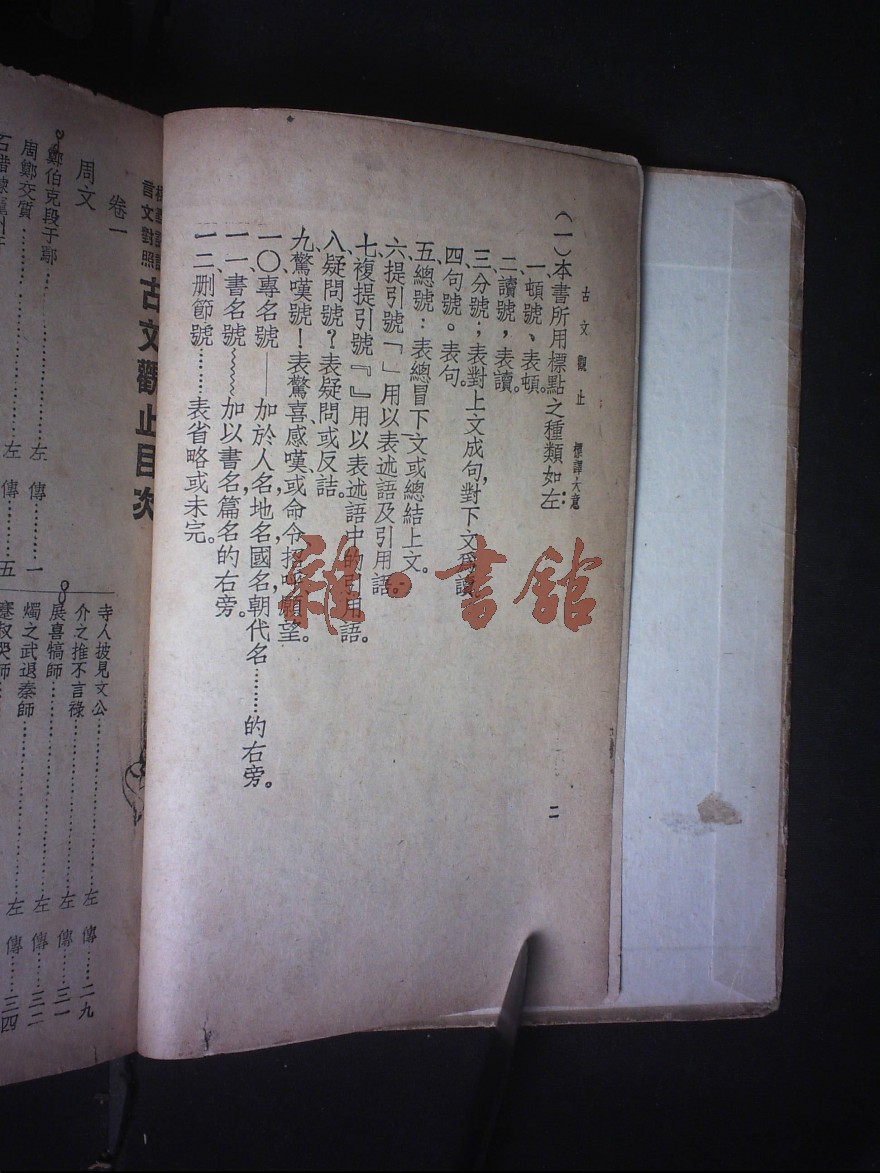 古文觀止 標譯大意
(一)本書所用標點之種類如左:
一、頓號、表頓。
二、讀號,表讀。
三、分號;表對上文成句,對下文爲讀。
四、句號。表句。
五、總號:表總冒下文或總結上文。
六、提引號「」用以表述語及引用語。
七、複提引號『』用以表述語中的引用語。
八、疑問號?表疑問或反詰。
九、驚嘆號!表驚喜感嘆或命令,招呼,願望。
一〇、專名號——加於人名地名國名朝代名………的右旁。
一一、書名號﹏﹏加以書名篇名的右旁。
一二、刪節號……表省略或未完。
二
雜·書館
言文對照
古文觀止目次
卷一
周文
鄭伯克段于鄢……左傳……一
周鄭交質……左傳……五
寺人披見文公……左傳……二九
介之推不言祿……左傳……三一
展喜犒師……左傳……三二
燭之武退秦師……左傳……三四
蹇叔哭師